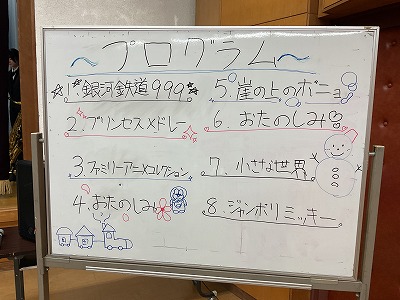 ～プログラム～
1.銀河鉄道999
2.プリンセスメドレー
3.ファミリーアニメコレクション
4.おたのしみ
5.崖の上のポニョ
6.おたのしみ
7.小さな世界
8.ジャンボリミッキー